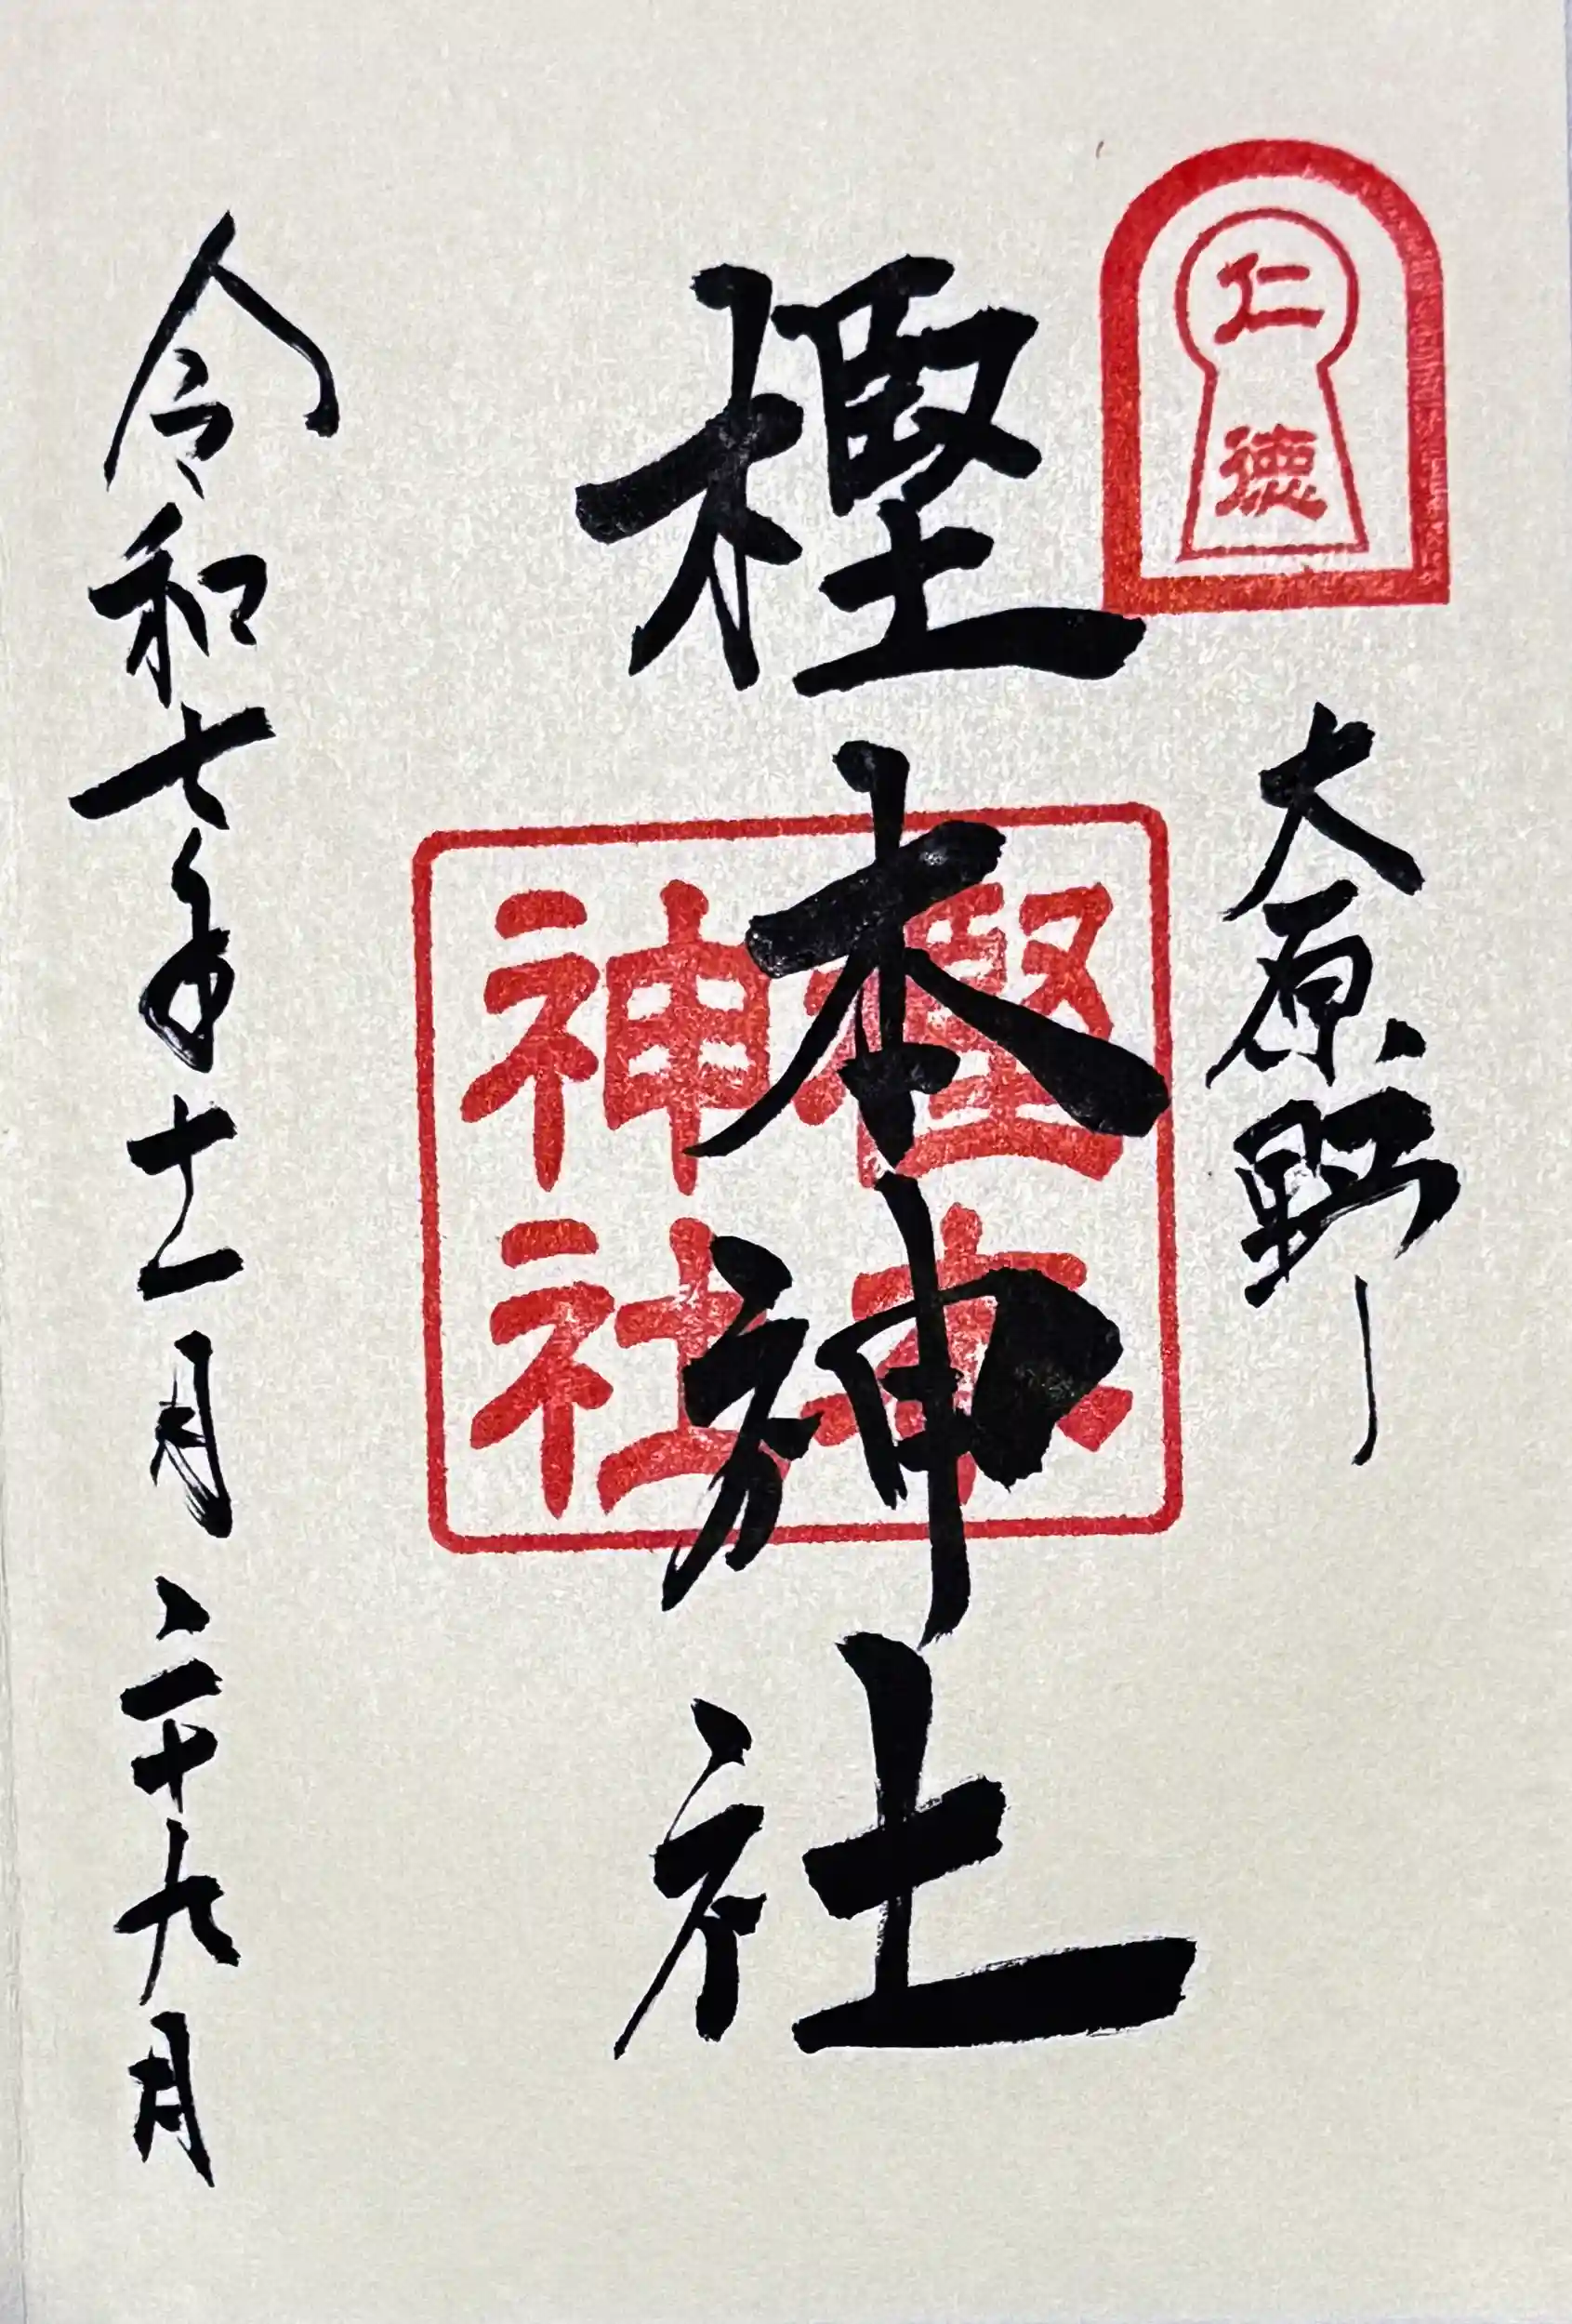 仁徳
大原野
樫本神社
樫本
神社
令和七年十一月二十九日